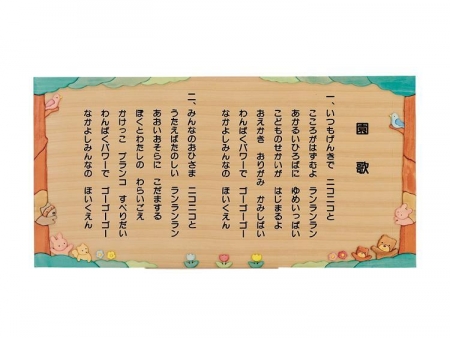 園歌
一、いつもげんきで ニコニコと
こころがはずむよ ランランラン
あかるいひろばに ゆめいっぱい
こどものせかいが はじまるよ
おえかき おりがみ かみしばい
わんぱくパワーで ゴーゴーゴー
なかよしみんなの ほいくえん
二、みんなのおひさま ニコニコと
うたえばたのしい ランランラン
あおいおそらに こだまする
ぼくとわたしの わらいごえ
かけっこ ブランコ すべりだい
わんぱくパワーで ゴーゴーゴー
なかよしみんなの ほいくえん